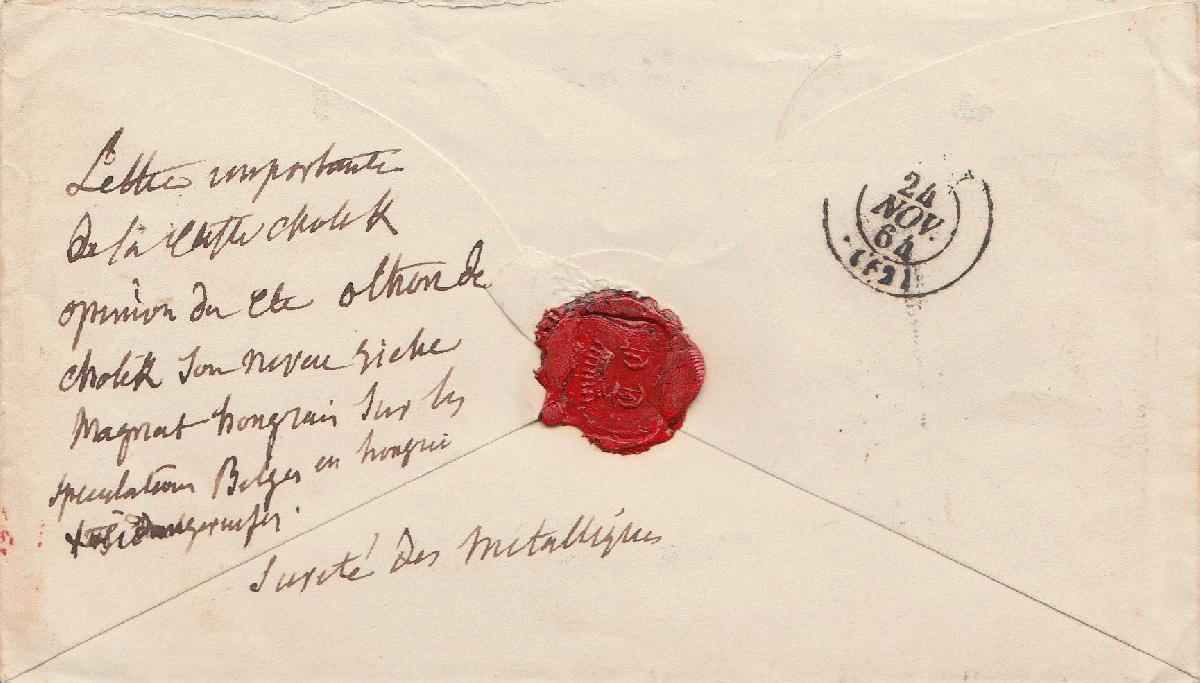 Lettre importante
de la Ctesse Chotek
opinion du Cte othon de
Chotek son neveu riche
Magnat hongrais sur les
speculations Belges en hongrie
dangereuses.
Sureté des Metalliques
24
NOV.
64